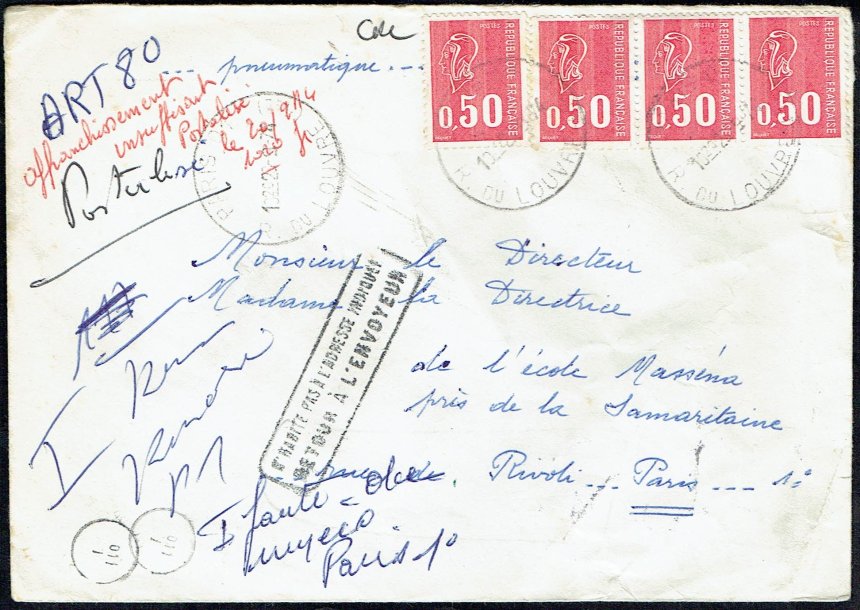 ART 80
... pneumatique ...
affranchissement
insuffisant
Postalisé
le 20/9/74
Postalisé
POSTES
RÉPUBLIQUE FRANÇAISE
0,50
POSTES
RÉPUBLIQUE FRANÇAISE
0,50
POSTES
RÉPUBLIQUE FRANÇAISE
0,50
POSTES
RÉPUBLIQUE FRANÇAISE
0,50
PARIS
R. DU LOUVRE
R. DU LOUVRE
R. DU LOUVRE
Monsieur le Directeur
Madame la Directrice
de l'école Masséna
près de la Samaritaine
rue de Rivoli ... Paris ... 1e
N'HABITE PAS A L'ADRESSE INDIQUEE
RETOUR À L'ENVOYEUR
I
I
Paris 1o
1
110
1
110